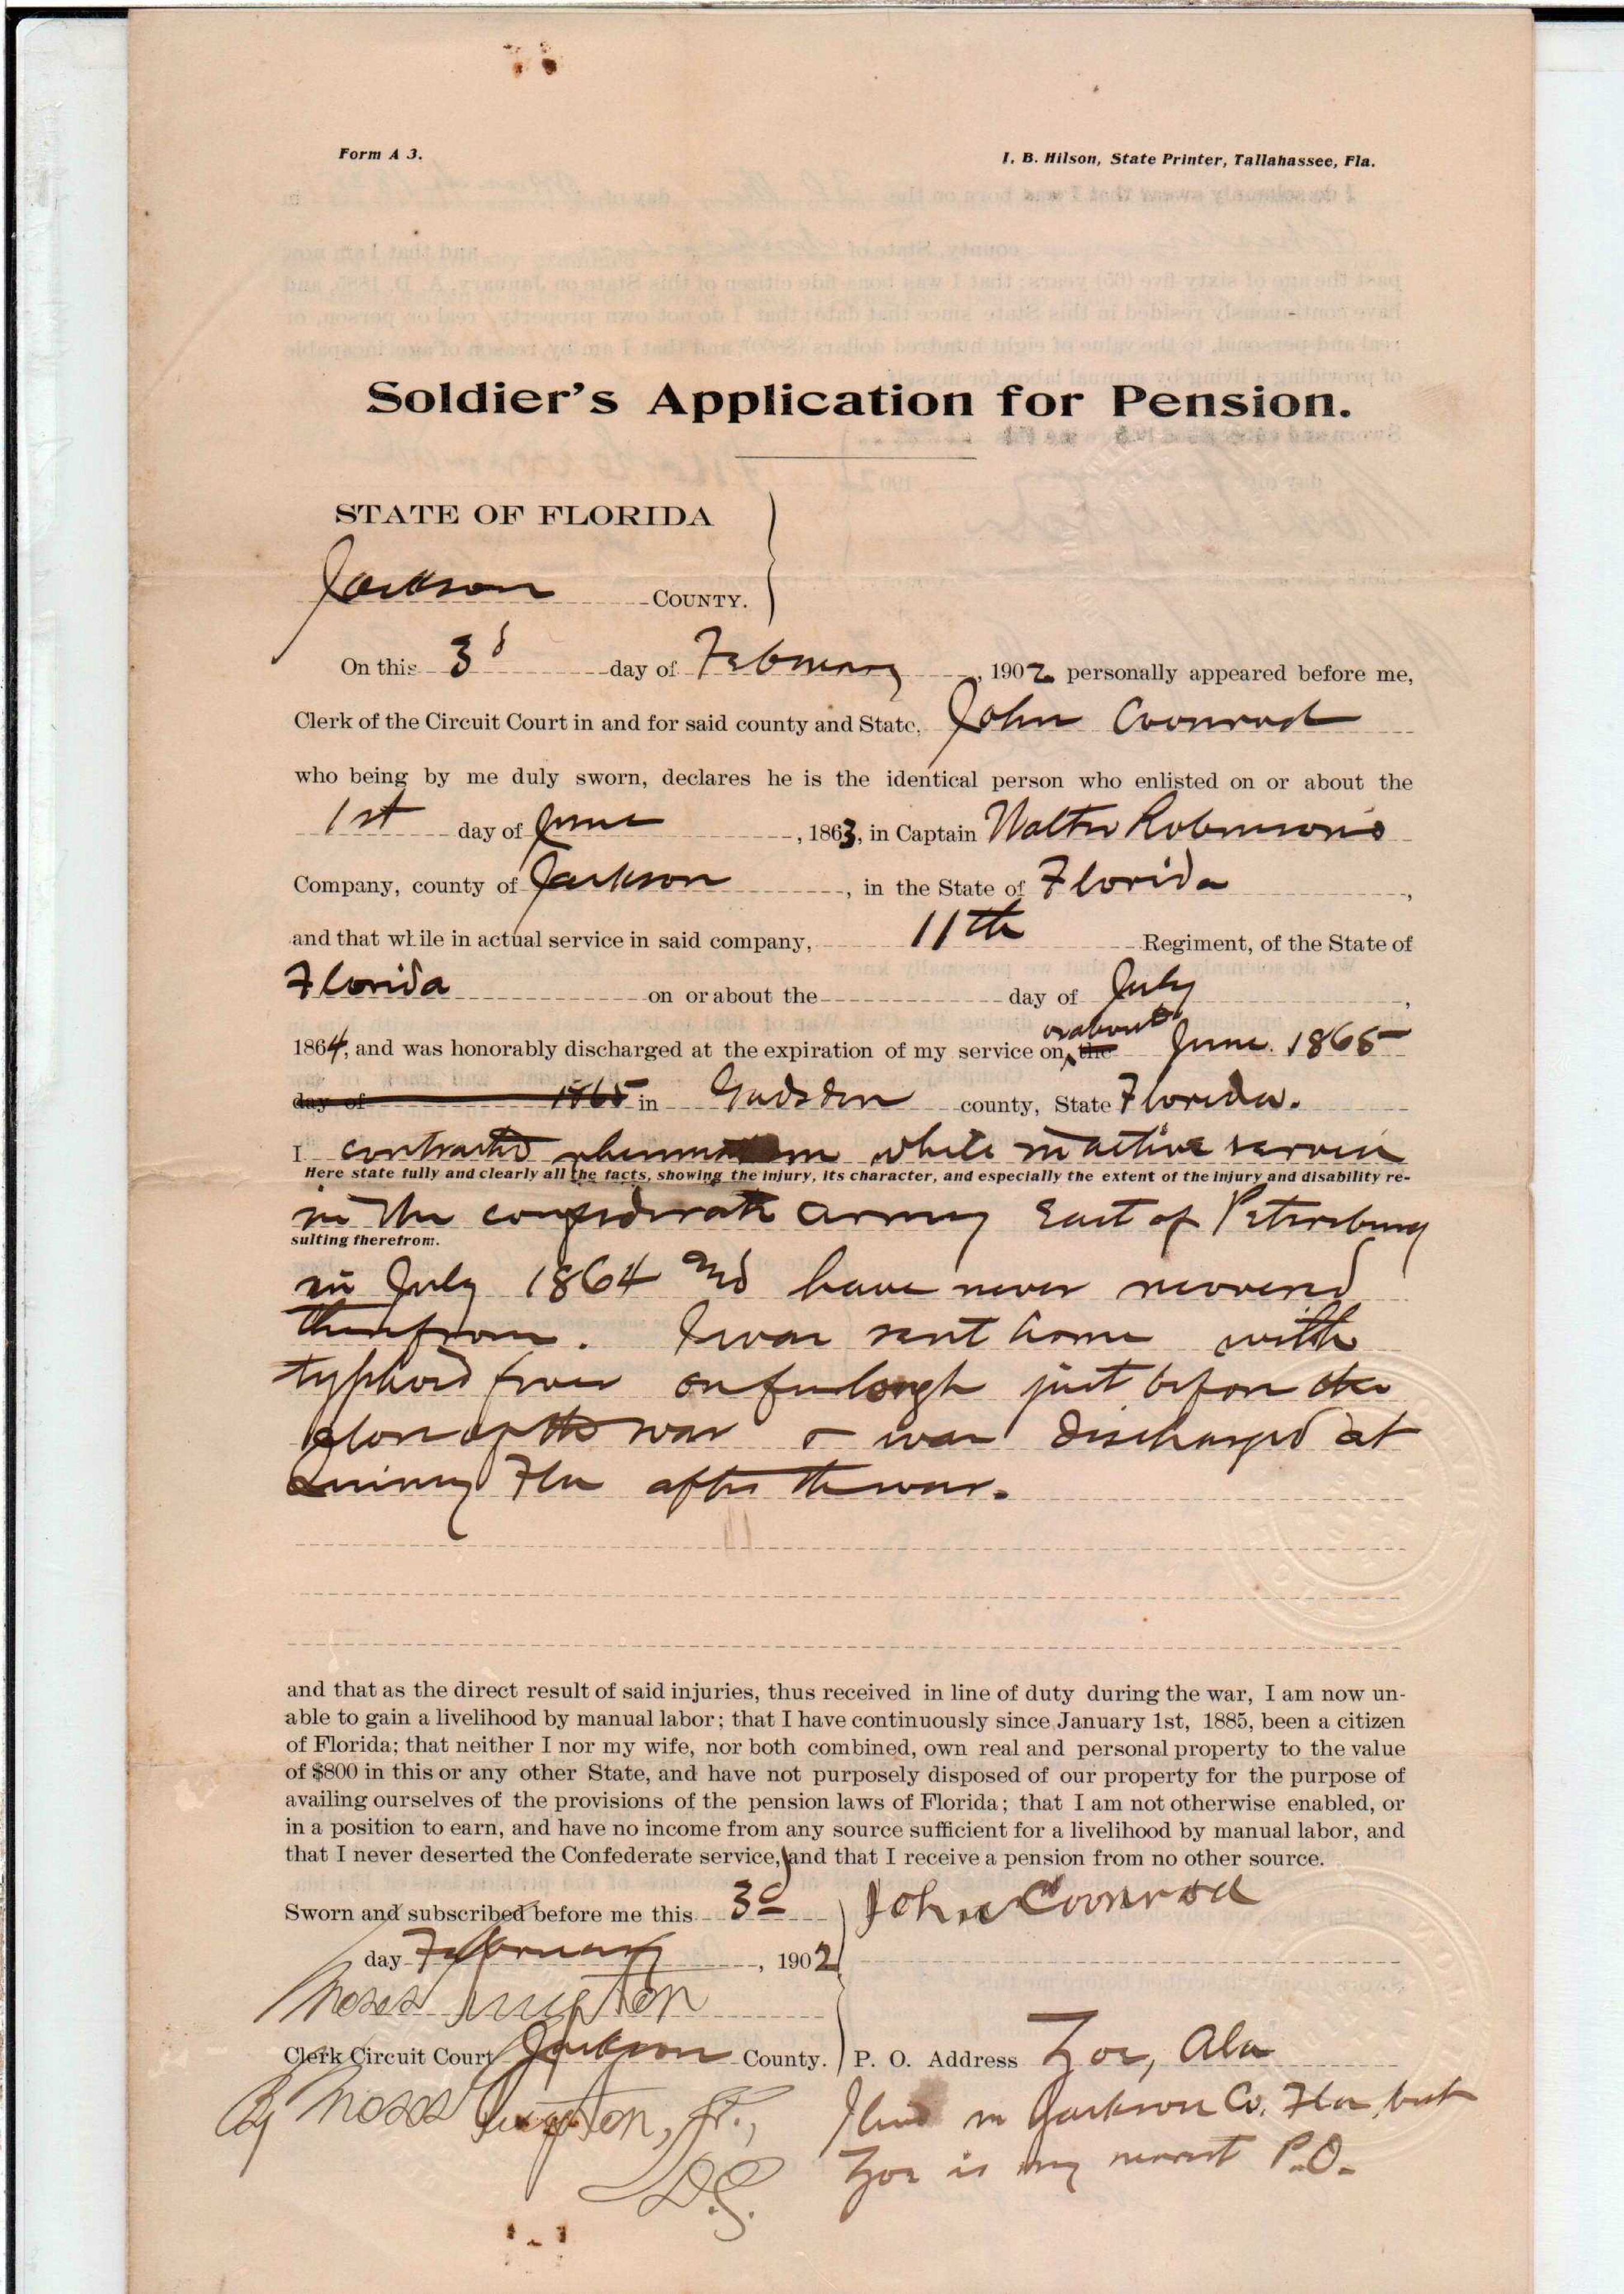 Form A 3.
I. B. Hilson, State Printer, Tallahassee, Fla.
Soldier's Application for Pension.
STATE OF FLORIDA
Jackson COUNTY.
On this 3d day of February, 1902 personally appeared before me,
Clerk of the Circuit Court in and for said county and State, John Coonrod
who being by me duly sworn, declares he is the identical person who enlisted on or about the
1st day of June, 1863, in Captain Walter Robinson's
Company, county of Jackson, in the State of Florida,
and that while in actual service in said company, 11th Regiment, of the State of
Florida on or about the day of July,
or about
1864, and was honorably discharged at the expiration of my service on the June 1865
day of 1865 in Gadsden county, State Florida.
I contracted rheumatism while in active service
Here state fully and clearly all the facts, showing the injury, its character, and especially the extent of the injury and disability re-
in the confederate army East of Petersburg
sulting therefrom.
in July 1864 and have never recovered
therefrom. I was sent home with
typhoid fever on furlough just before the
close of the war & was discharged at
Quincy Fla after the war.
and that as the direct result of said injuries, thus received in line of duty during the war, I am now un-
able to gain a livelihood by manual labor; that I have continuously since January 1st, 1885, been a citizen
of Florida; that neither I nor my wife, nor both combined, own real and personal property to the value
of $800 in this or any other State, and have not purposely disposed of our property for the purpose of
availing ourselves of the provisions of the pension laws of Florida; that I am not otherwise enabled, or
in a position to earn, and have no income from any source sufficient for a livelihood by manual labor, and
that I never deserted the Confederate service, and that I receive a pension from no other source.
Sworn and subscribed before me this 3d
John Coonrod
day February, 1902
Moses Guyton
Clerk Circuit Court Jackson County.
P. O. Address Zoe, Ala
By Moses Guyton, Jr.,
D.C.
I live in Jackson Co. Fla but
Zoe is my nearest P.O.